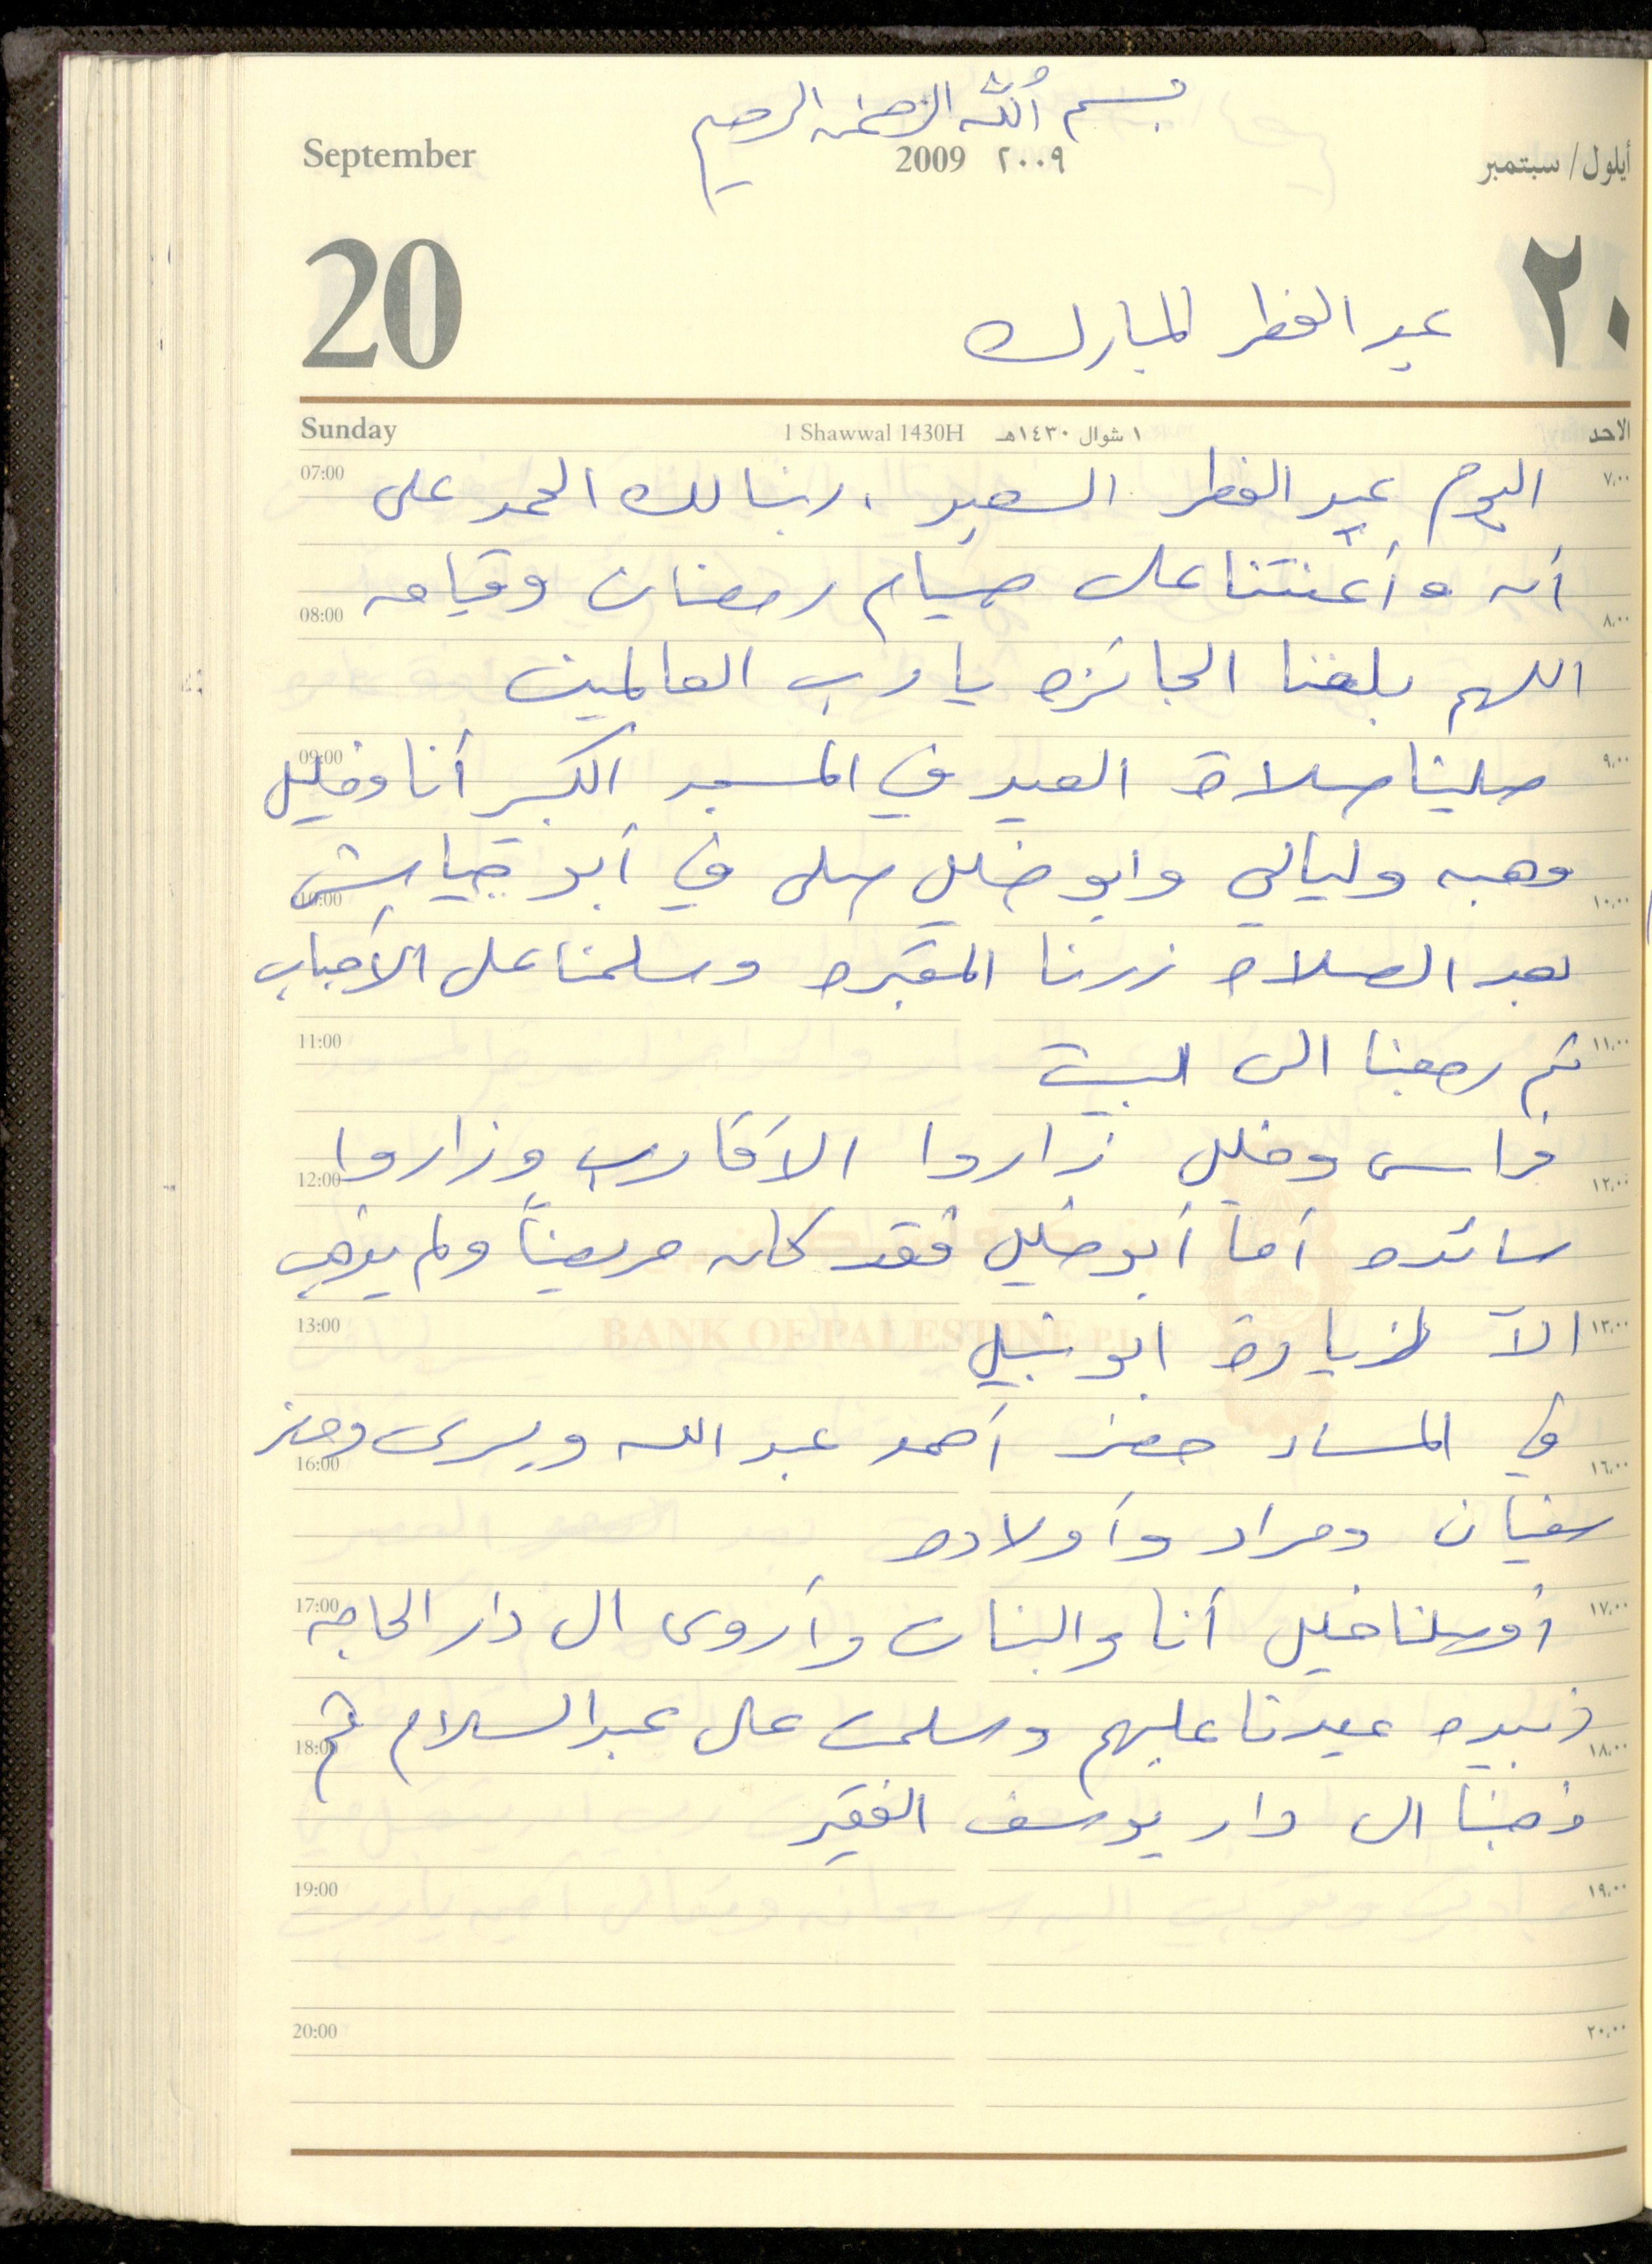 بسم الله الرحمن الرحيم
September 2009 ٢٠٠٩ أيلول/سبتمبر
20 ٢٠
عيد الفطر المبارك
Sunday 1 Shawwal 1430H ١ شوال ١٤٣٠هـ الاحد
07:00 اليوم عيد الفطر السعيد . ربنا لك الحمد على ٧,٠٠
أن وأعنتنا على صيام رمضان وقيامه
08:00 ٨,٠٠
اللهم بلغنا الجائزه يا رب العالمين
09:00 صلينا صلاة العيد في المسجد الكبير أنا وخليل ٩,٠٠
وهبه وليالي وابو خليل صلى في أبو
10:00 ١٠,٠٠
بعد الصلاه زرنا المقبره وسلمنا على الأحباب
11:00 ثم رجعنا الى البيت ١١,٠٠
فراس وخليل زاروا الأقارب وزاروا
12:00 ١٢,٠٠
سائده أما أبو خليل فقد كان مريضاً ولم يذهب
13:00 الآ لزيارة ابو نبيل ١٣,٠٠
BANK OF PALESTINE PLC
في المساء حضر أحمد عبد الله ويسرى وحضر
16:00 ١٦,٠٠
سفيان ومراد وأولاده
17:00 أوصلنا خليل أنا والبنات وأروى الى دار الحاجه ١٧,٠٠
زبيده عيدنا عليهم وسلمت على عبد السلام ثم
18:00 ١٨,٠٠
ذهبنا الى دار يوسف الفقير
19:00 ١٩,٠٠
20:00 ٢٠,٠٠